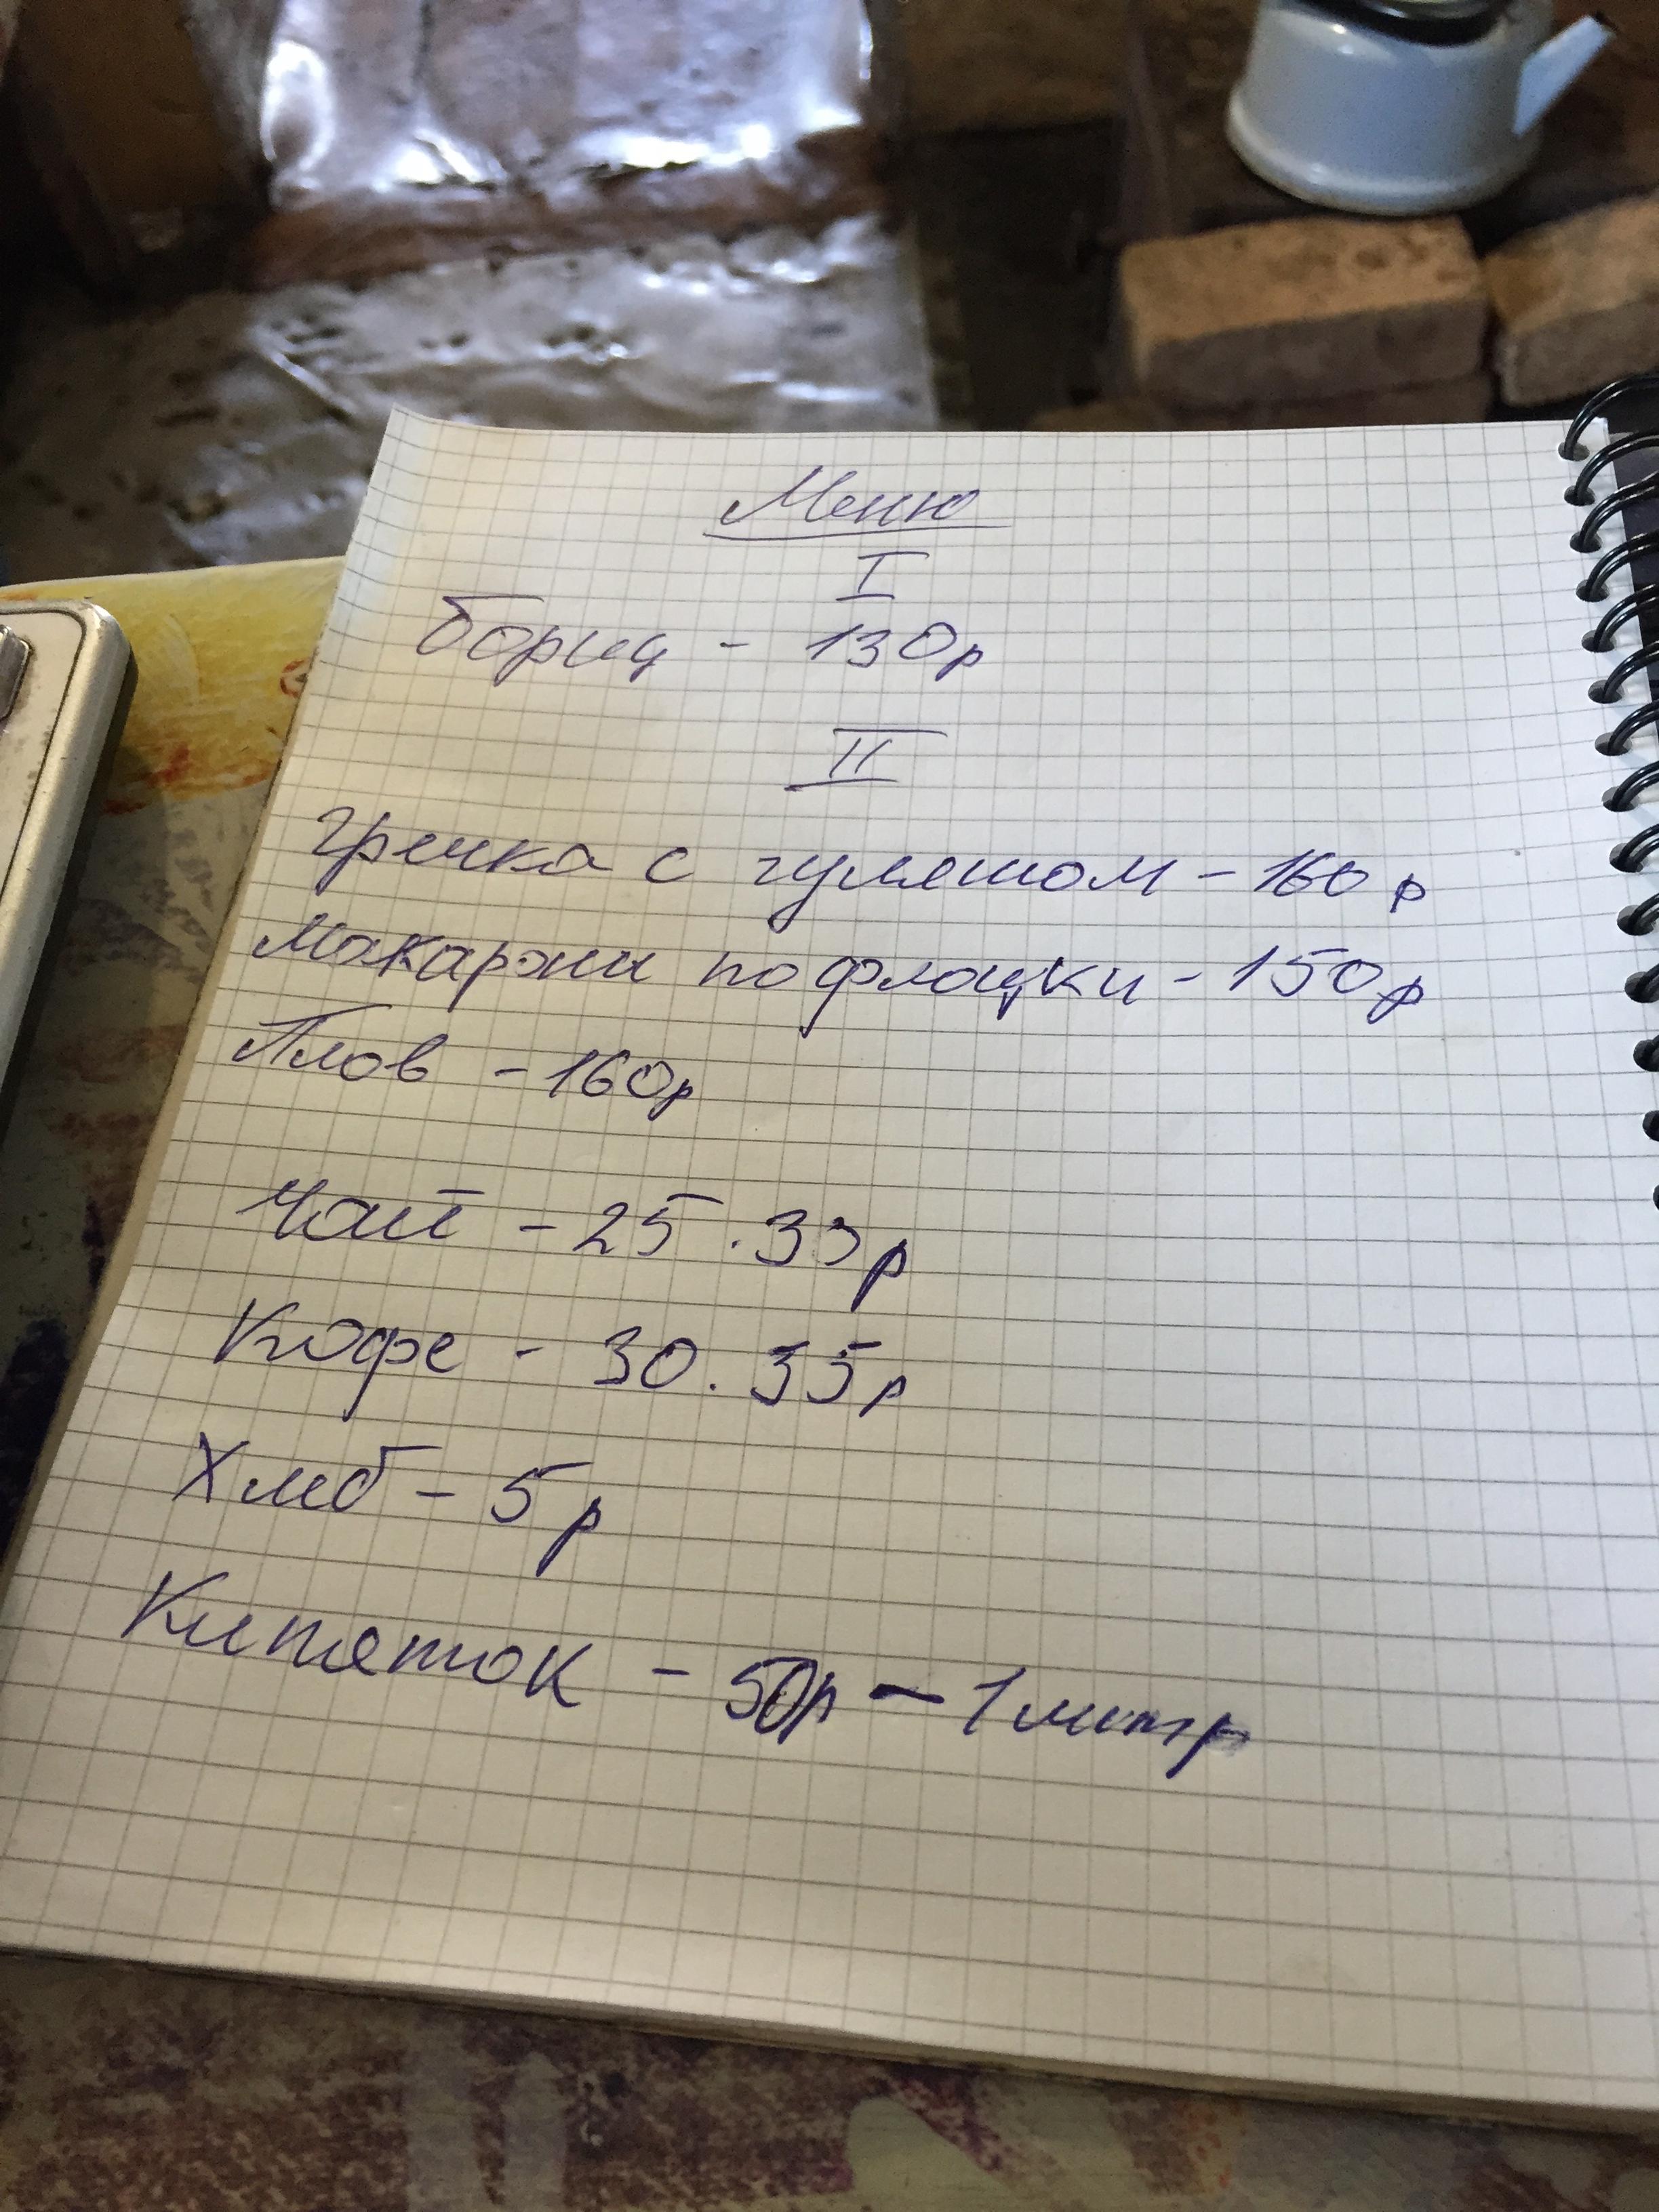 Меню
I
борщ - 130р
II
гречка с гуляшом - 160 р
макарони по флоцки - 150р
Плов - 160р
Чай - 25.33р
Кофе - 30.35р
Хлеб - 5р
Кипяток - 50р - 1 литр